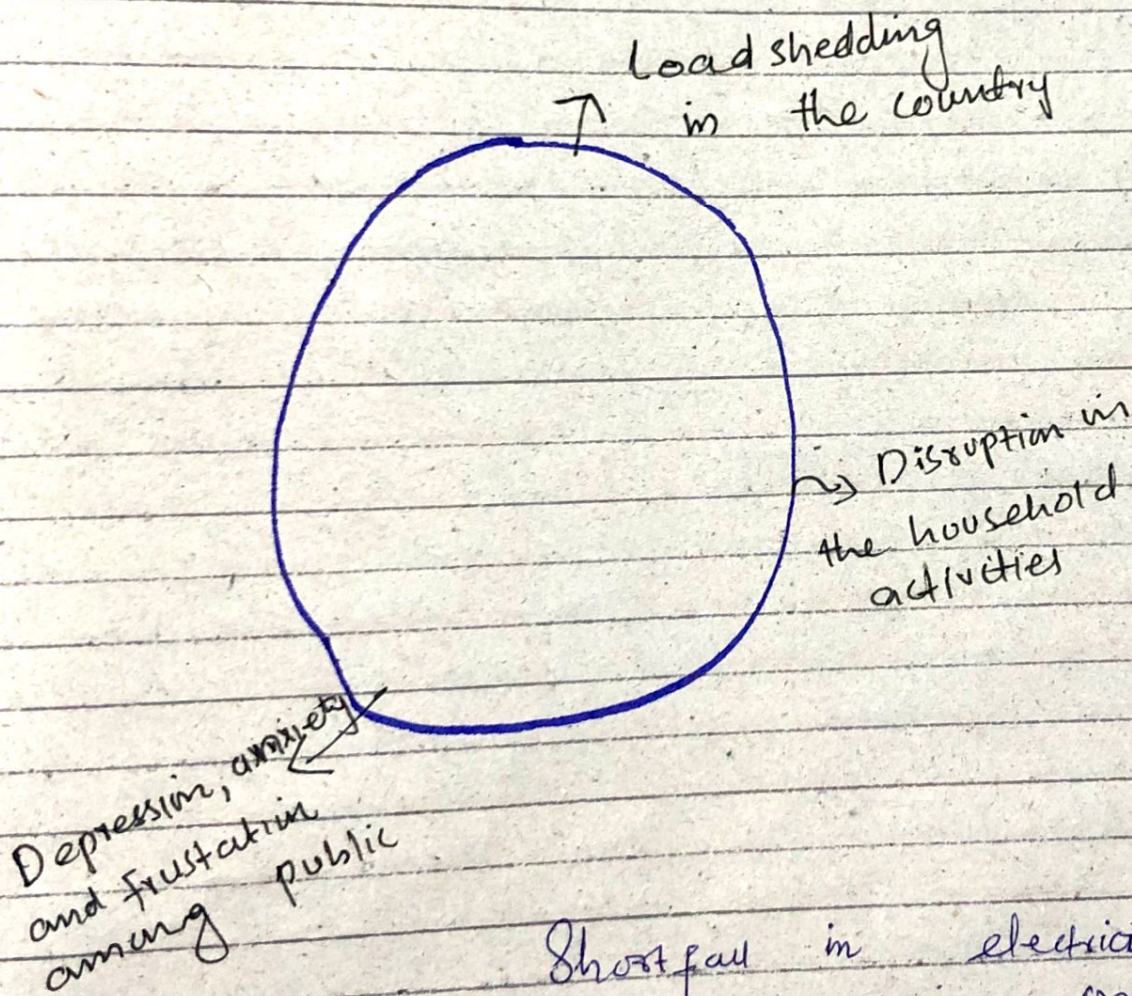 Load shedding
in the country
Disruption in
the household
activities
Depression, anxiety
and frustation
among public
Shortfall in electric